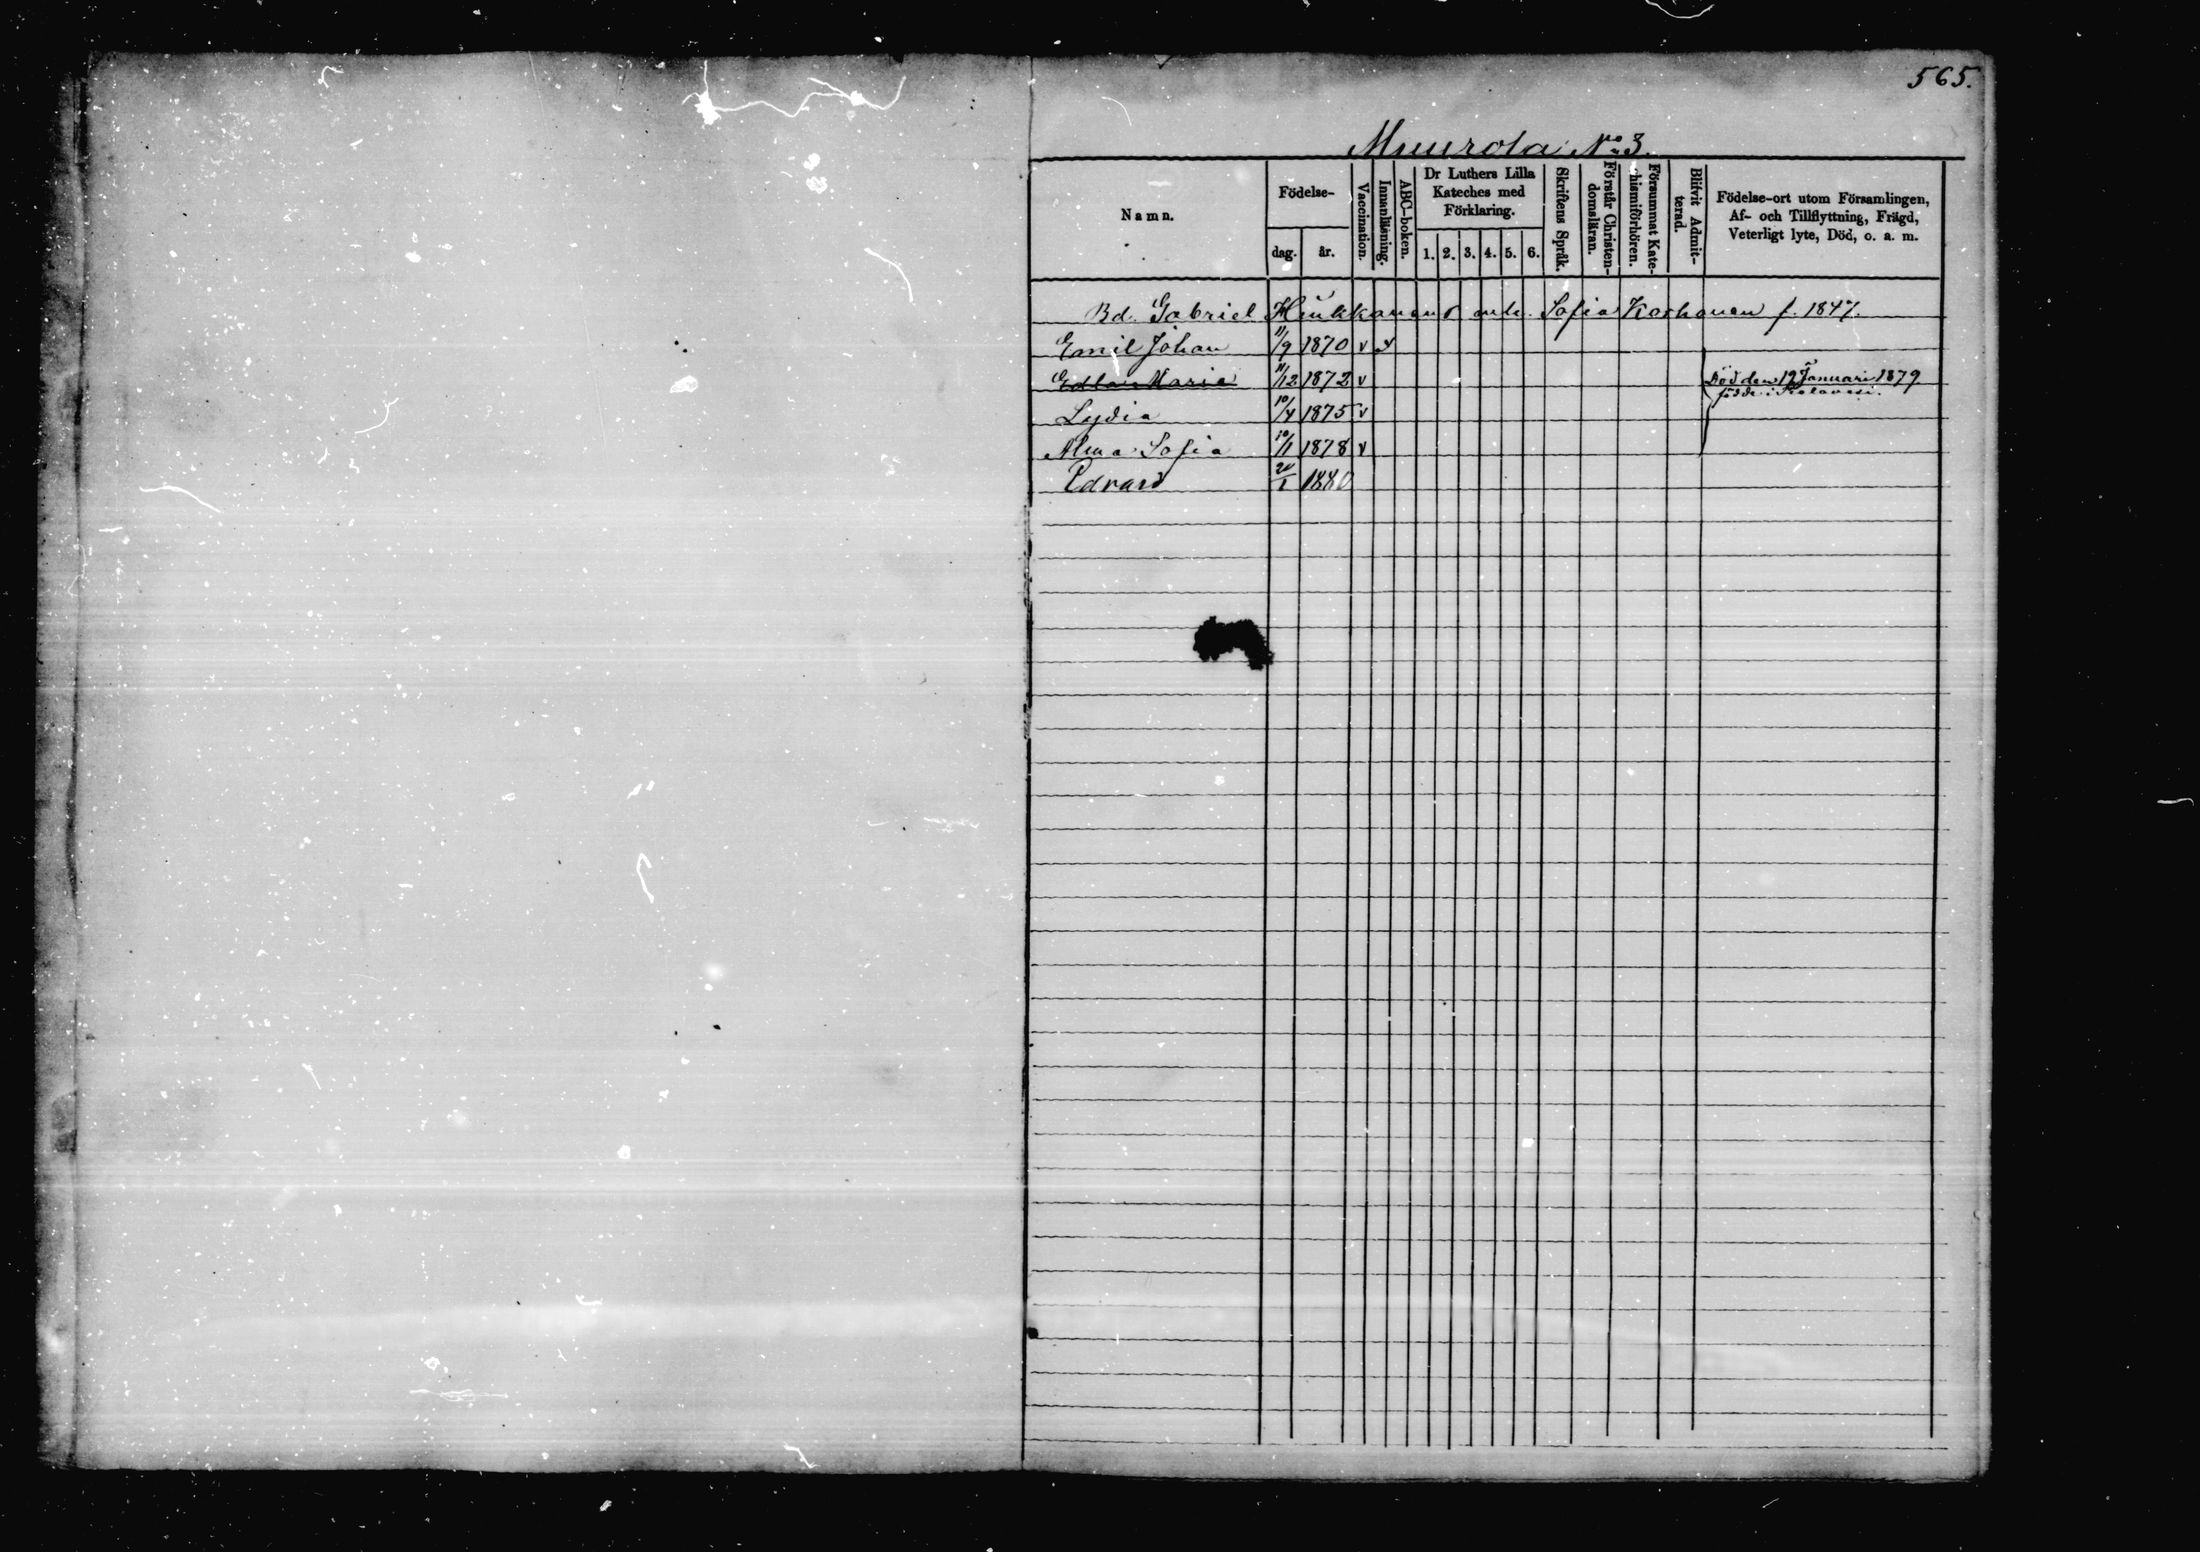 565.
Muurola No 3.
Namn.
Födelse-
dag.
år.
Vaccination.
Innanläsning.
ABC-boken.
Dr Luthers Lilla
Kateches med
Förklaring.
1. 2. 3. 4. 5. 6.
Skriftens Språk.
Förstår Christen-
domsläran.
Försummat Kate-
chismiförhören.
Blifvit Admit-
terad.
Födelse-ort utom Församlingen,
Af- och Tillflyttning, Frägd,
Veterligt lyte, Död, o. a. m.
Bd. Gabriel Huikkanen o. enk. Sofia Korhonen f. 1847.
Emil Johan 11/9 1870 v x
Edla Maria 11/12 1872 v Död den 19 Januari 1879.
födde i
Lydia 10/4 1875 v
Alma Sofia 10/1 1878 v
Edvard 24/1 1880